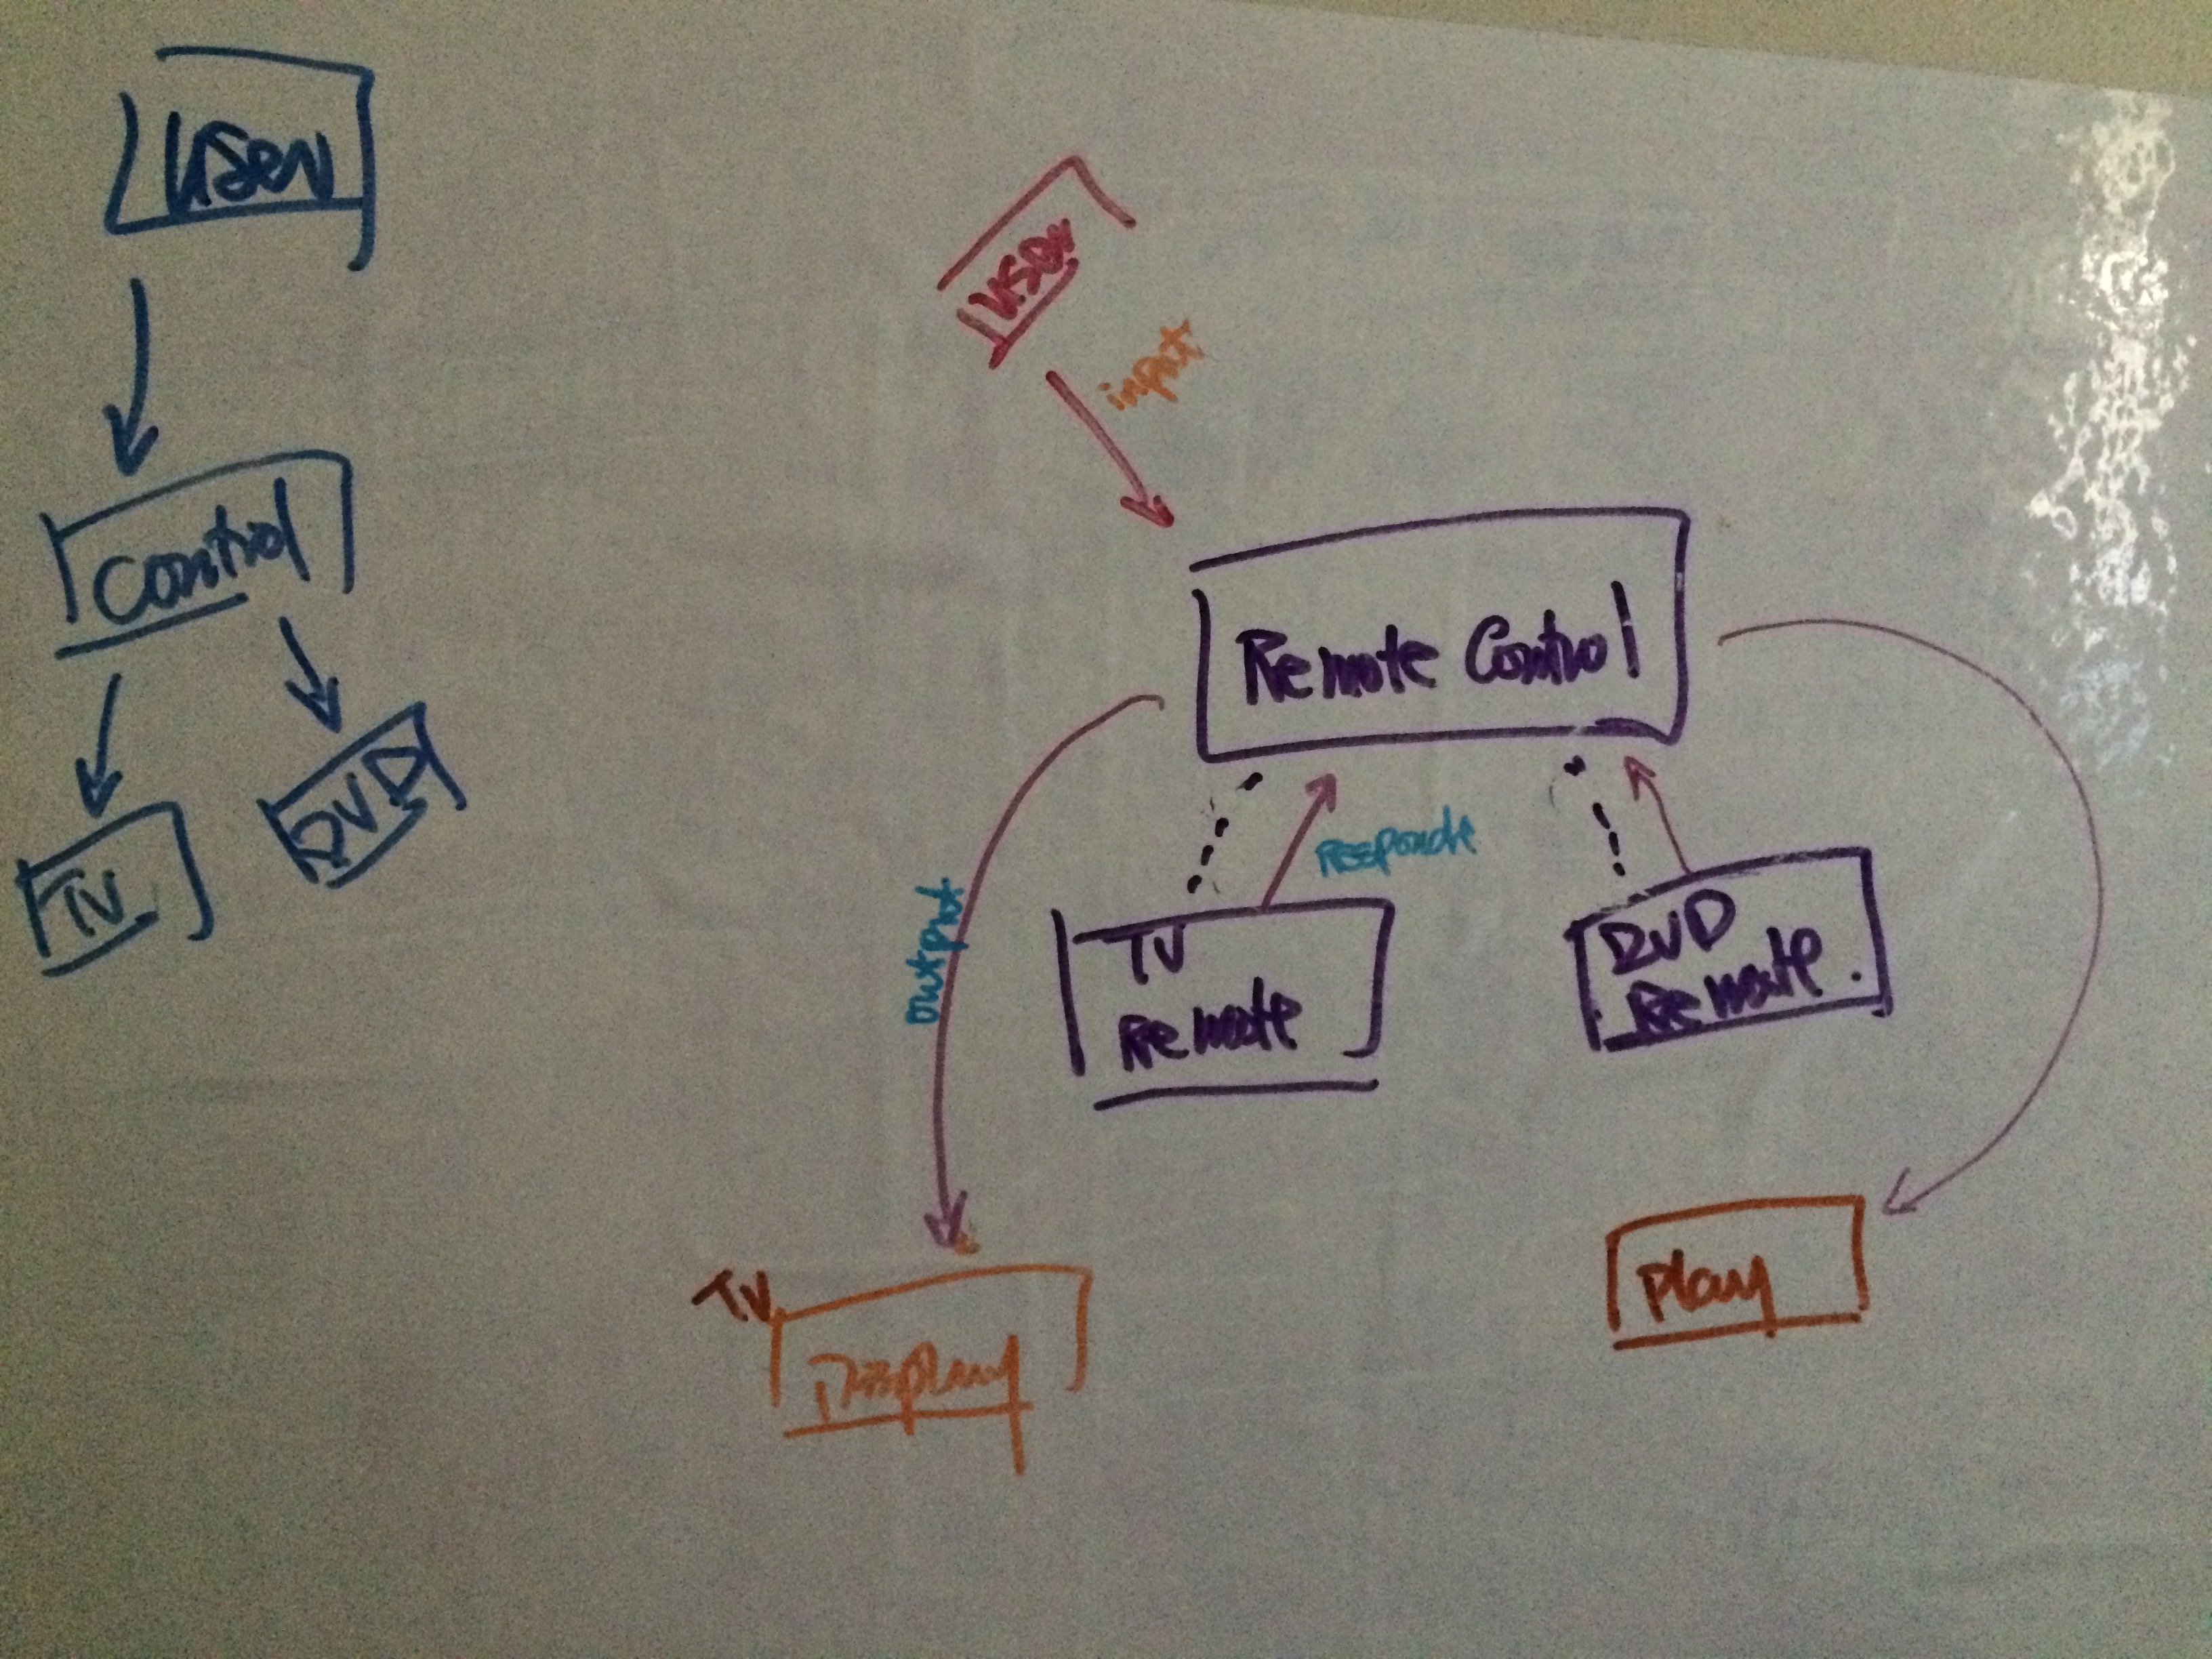 User
Control
TV
DVD
User
input
Remote Control
Responde
output
TV
Remote
DVD
Remote.
TV
Display
Play